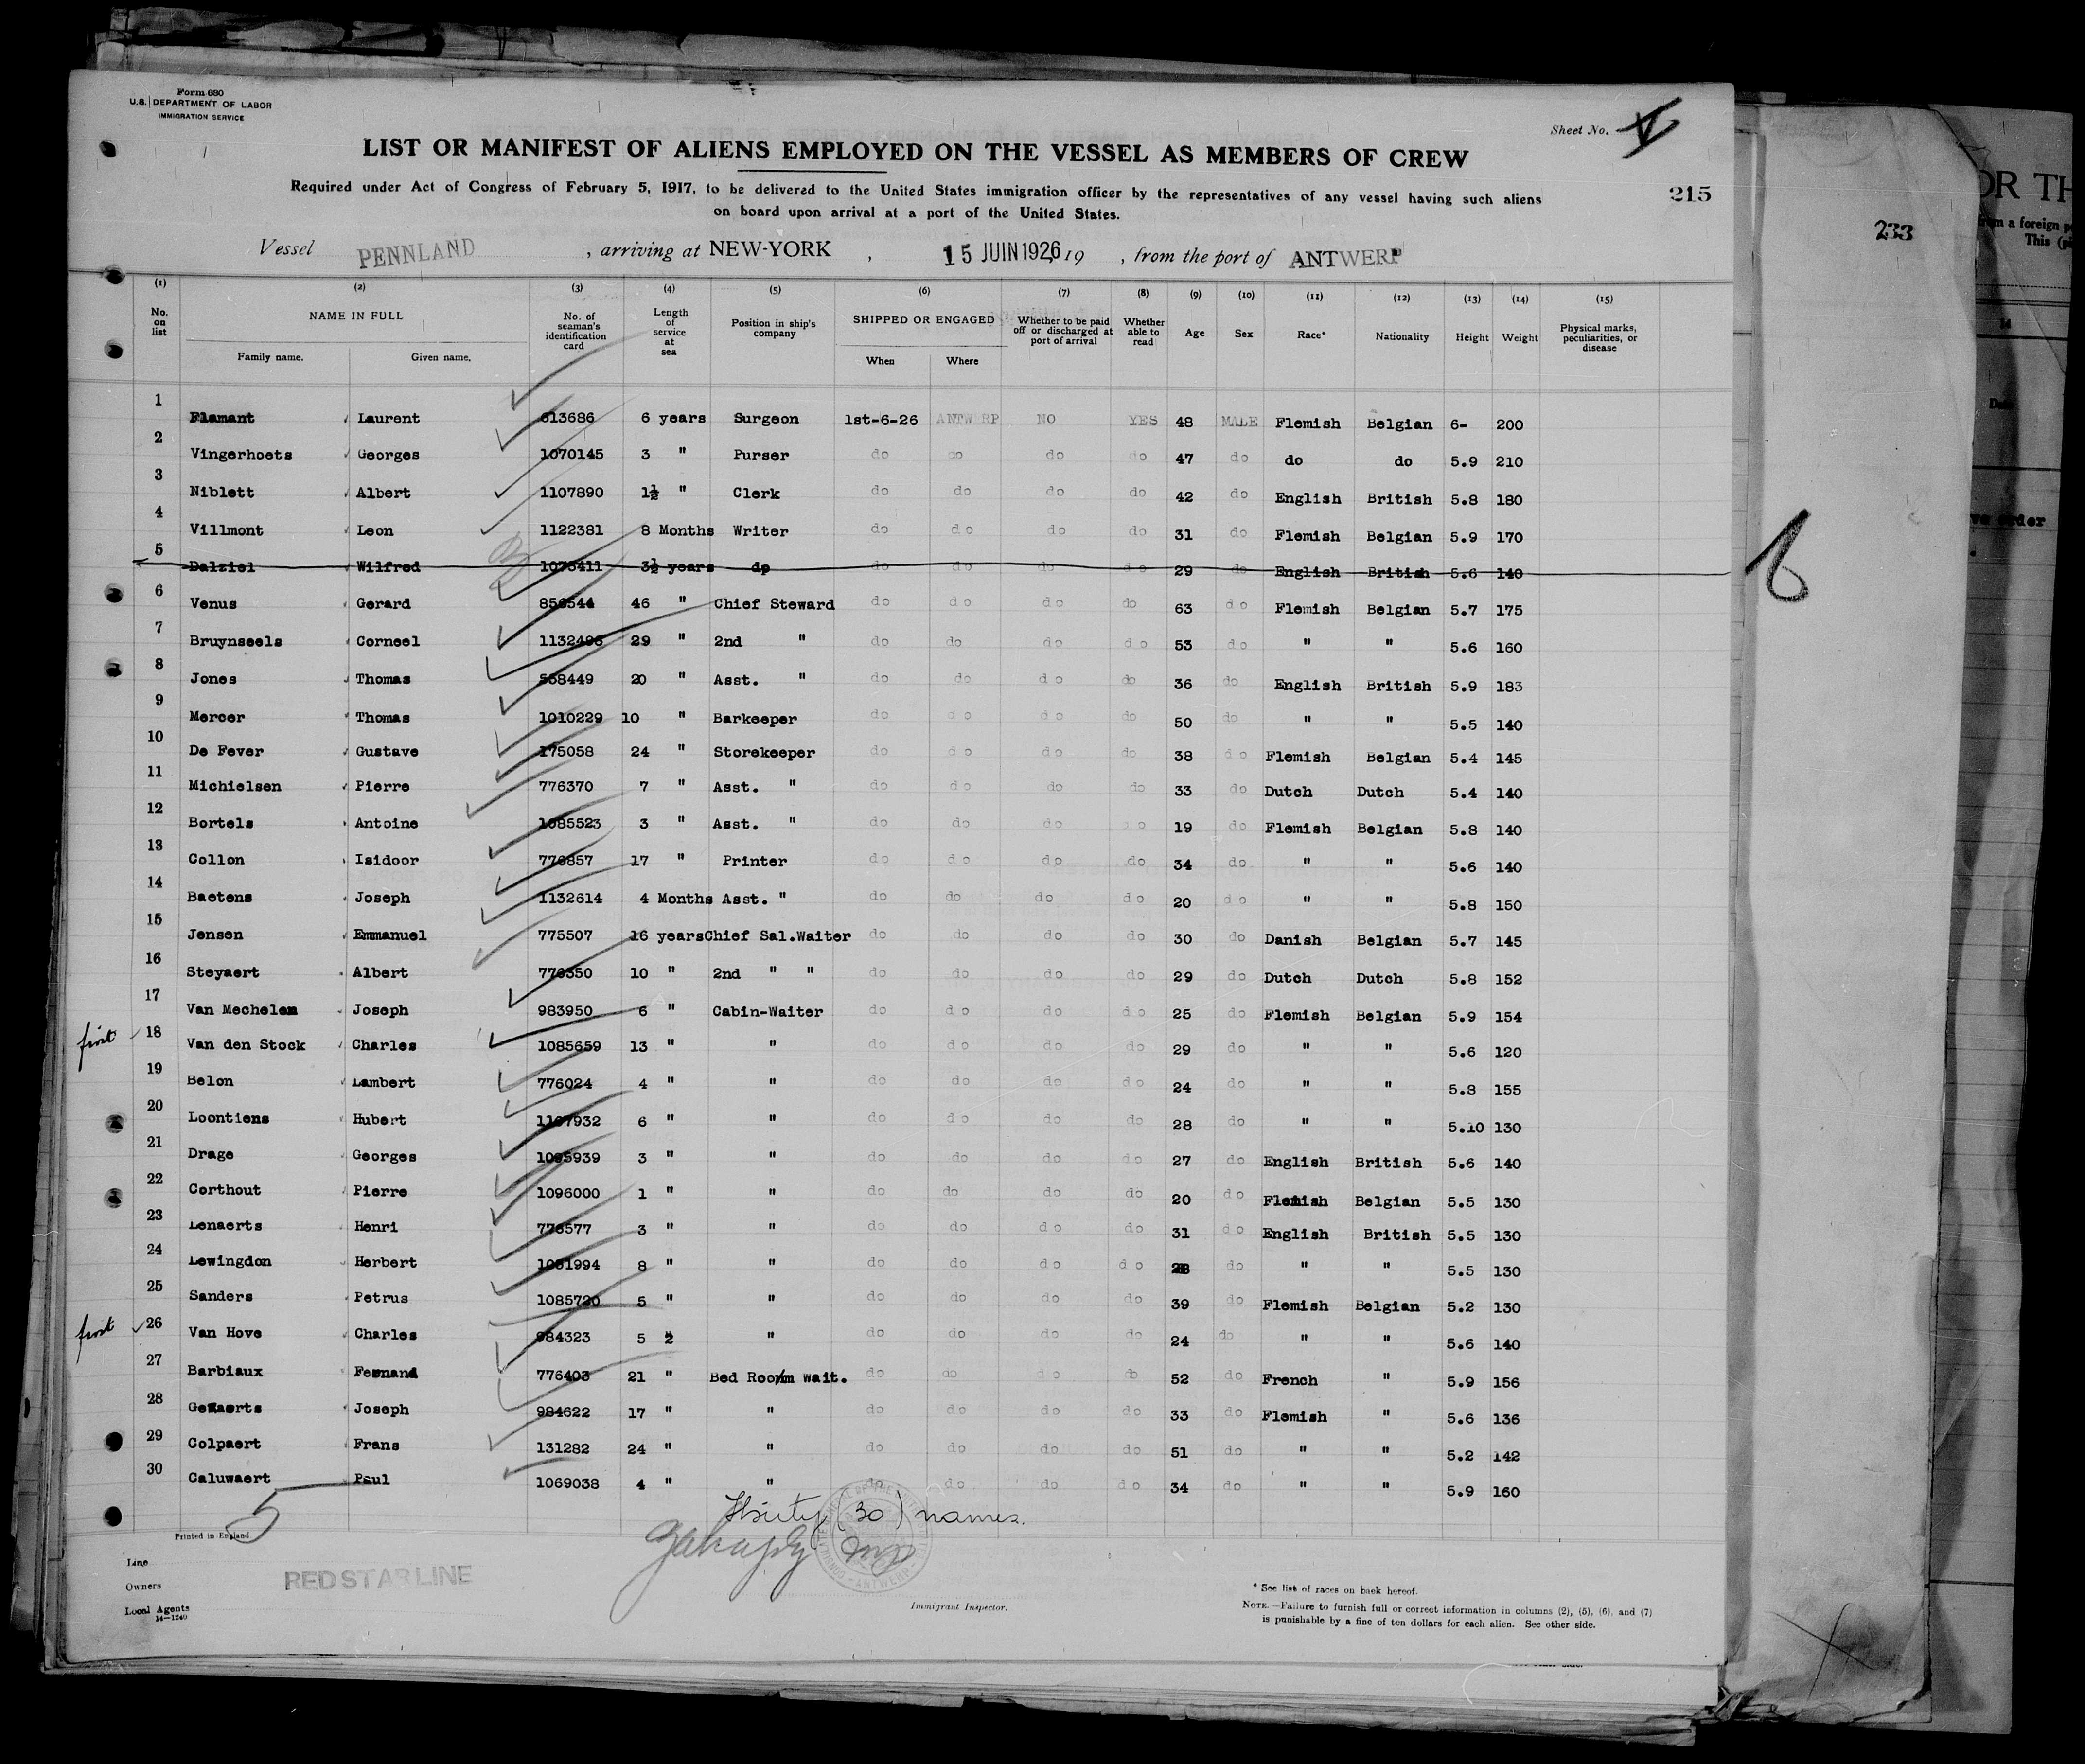 Form 680
U.S. DEPARTMENT OF LABOR
IMMIGRATION SERVICE
Sheet No. V
LIST OR MANIFEST OF ALIENS EMPLOYED ON THE VESSEL AS MEMBERS OF CREW
Required under Act of Congress of February 5, 1917, to be delivered to the United States immigration officer by the representatives of any vessel having such aliens
on board upon arrival at a port of the United States.
215
233
Vessel PENNLAND , arriving at NEW-YORK , 15 JUIN 1926 19 , from the port of ANTWERP
(1) (2) (3) (4) (5) (6) (7) (8) (9) (10) (11) (12) (13) (14) (15)
No. on list NAME IN FULL Family name. Given name. No. of seaman's identification card Length of service at sea Position in ship's company SHIPPED OR ENGAGED When Where Whether to be paid off or discharged at port of arrival Whether able to read Age Sex Race* Nationality Height Weight Physical marks, peculiarities, or disease
1 Flamant Laurent 613686 6 years Surgeon 1st-6-26 ANTWERP NO YES 48 MALE Flemish Belgian 6- 200
2 Vingerhoets Georges 1070145 3 " Purser do do do do 47 do do do 5.9 210
3 Niblett Albert 1107890 1½ " Clerk do do do do 42 do English British 5.8 180
4 Villmont Leon 1122381 8 Months Writer do do do do 31 do Flemish Belgian 5.9 170
5 Dalziel Wilfred 1073411 3½ years do do do do do 29 do English British 5.6 140
6 Venus Gerard 856544 46 " Chief Steward do do do do 63 do Flemish Belgian 5.7 175
7 Bruynseels Corneel 1132498 29 " 2nd " do do do do 53 do " " 5.6 160
8 Jones Thomas 558449 20 " Asst. " do do do do 36 do English British 5.9 183
9 Mercer Thomas 1010229 10 " Barkeeper do do do do 50 do " " 5.5 140
10 De Fever Gustave 175058 24 " Storekeeper do do do do 38 do Flemish Belgian 5.4 145
11 Michielsen Pierre 776370 7 " Asst. " do do do do 33 do Dutch Dutch 5.4 140
12 Bortels Antoine 1085523 3 " Asst. " do do do do 19 do Flemish Belgian 5.8 140
13 Collon Isidoor 776857 17 " Printer do do do do 34 do " " 5.6 140
14 Baetens Joseph 1132614 4 Months Asst. " do do do do 20 do " " 5.8 150
15 Jensen Emmanuel 775507 16 years Chief Sal.Waiter do do do do 30 do Danish Belgian 5.7 145
16 Steyaert Albert 776350 10 " 2nd " " do do do do 29 do Dutch Dutch 5.8 152
17 Van Mechelem Joseph 983950 6 " Cabin-Waiter do do do do 25 do Flemish Belgian 5.9 154
first 18 Van den Stock Charles 1085659 13 " " do do do do 29 do " " 5.6 120
19 Belon Lambert 776024 4 " " do do do do 24 do " " 5.8 155
20 Loontiens Hubert 1107932 6 " " do do do do 28 do " " 5.10 130
21 Drage Georges 1095939 3 " " do do do do 27 do English British 5.6 140
22 Corthout Pierre 1096000 1 " " do do do do 20 do Flemish Belgian 5.5 130
23 Lenaerts Henri 776577 3 " " do do do do 31 do English British 5.5 130
24 Lewingdon Herbert 1061994 8 " " do do do do 28 do " " 5.5 130
25 Sanders Petrus 1085720 5 " " do do do do 39 do Flemish Belgian 5.2 130
first 26 Van Hove Charles 984323 5 " " do do do do 24 do " " 5.6 140
27 Barbiaux Fernand 776403 21 " Bed Room wait. do do do do 52 do French " 5.9 156
28 Geraerts Joseph 984622 17 " " do do do do 33 do Flemish " 5.6 136
29 Colpaert Frans 131282 24 " " do do do do 51 do " " 5.2 142
30 Caluwaert Paul 1069038 4 " " do do do do 34 do " " 5.9 160
5
Thirty (30) names.
Printed in England
Line
RED STAR LINE
Owners
Local Agents
14—1240
Immigrant Inspector.
* See list of races on back hereof.
NOTE.—Failure to furnish full or correct information in columns (2), (5), (6), and (7)
is punishable by a fine of ten dollars for each alien. See other side.